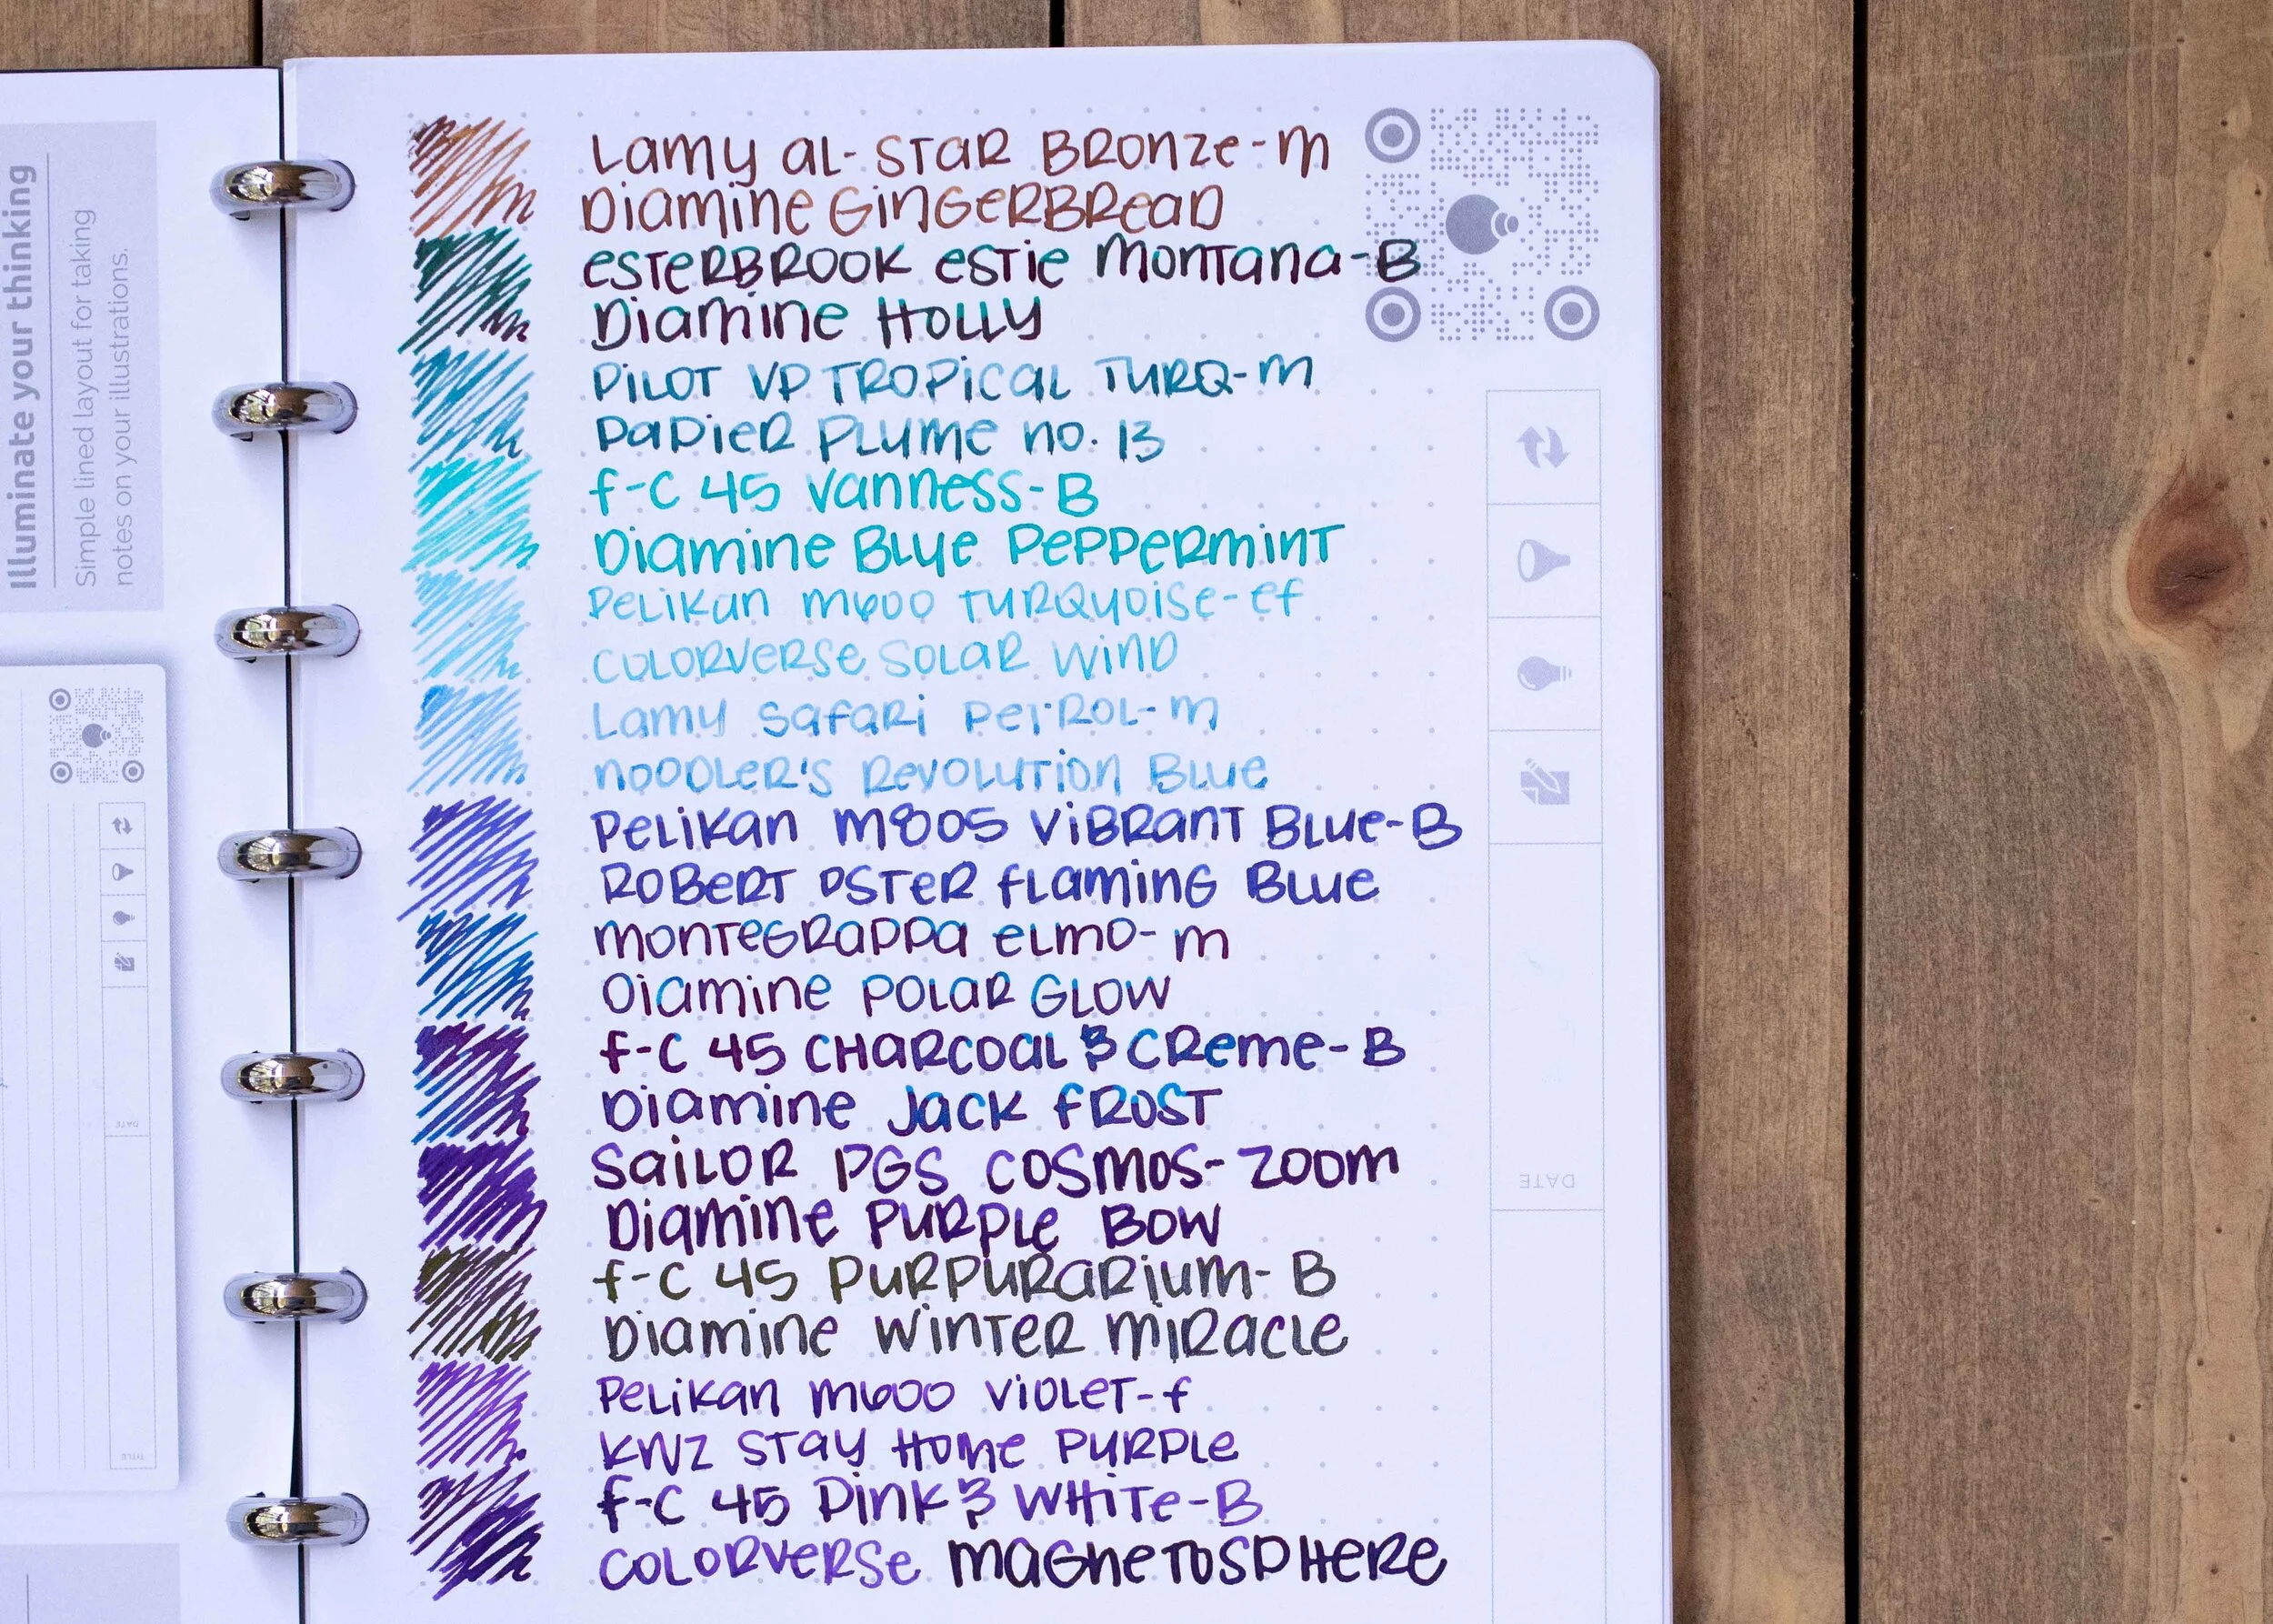 Illuminate your thinking
Simple lined layout for taking
notes on your illustrations.
DATE
TITLE
Lamy al-star Bronze-m
Diamine Gingerbread
esterbrook estie montana-B
Diamine Holly
Pilot VP Tropical Turq-m
Papier Plume no. 13
f-c 45 Vanness-B
Diamine Blue Peppermint
Pelikan m600 Turquoise-ef
Colorverse Solar Wind
Lamy Safari Petrol-m
noodler's Revolution Blue
Pelikan m805 Vibrant Blue-B
Robert Oster flaming Blue
montegrappa elmo-m
Diamine Polar Glow
f-c 45 Charcoal & Creme-B
Diamine Jack frost
Sailor PGS Cosmos-Zoom
Diamine Purple Bow
f-c 45 Purpurarium-B
Diamine Winter miracle
Pelikan m600 Violet-f
KWZ Stay Home Purple
f-c 45 Pink & White-B
Colorverse magnetosphere
DATE